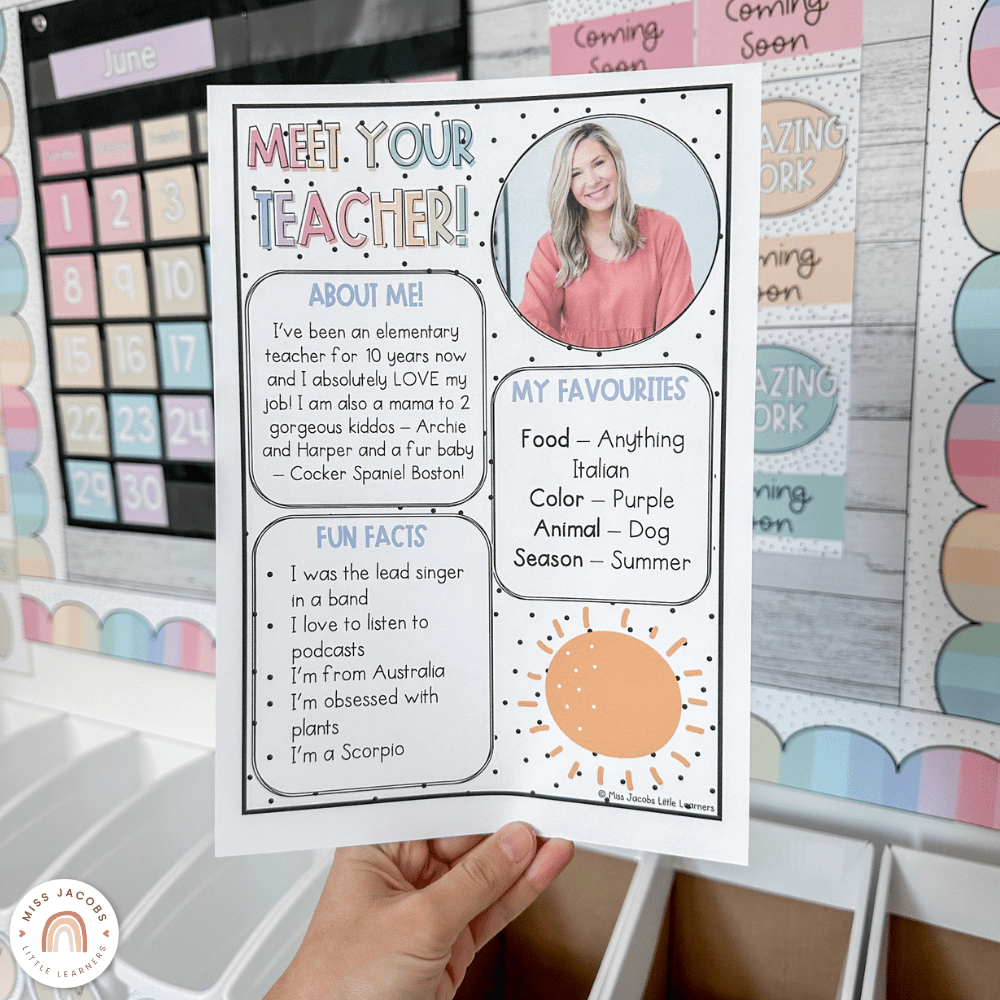 June
Coming
Soon
Coming
Soon
MEET YOUR
TEACHER!
ABOUT ME!
I've been an elementary
teacher for 10 years now
and I absolutely LOVE my
job! I am also a mama to 2
gorgeous kiddos – Archie
and Harper and a fur baby
– Cocker Spaniel Boston!
MY FAVOURITES
Food – Anything
Italian
Color – Purple
Animal – Dog
Season – Summer
FUN FACTS
• I was the lead singer
in a band
• I love to listen to
podcasts
• I'm from Australia
• I'm obsessed with
plants
• I'm a Scorpio
© Miss Jacobs Little Learners
1 2 3
8 9 10
15 16 17
22 23 24
29 30
AZING
ORK
ning
oon
AZING
ORK
ning
on
MISS JACOBS
LITTLE LEARNERS